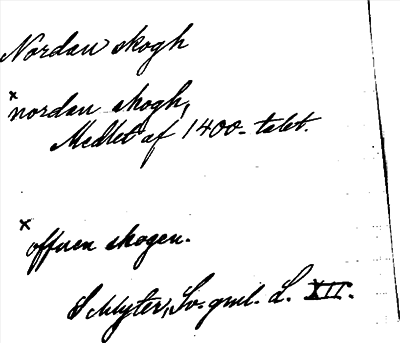 Nordan skogh
× nordan skogh,
Medlet af 1400-talet.
× offuen skogen.
Schlyter, Sv. gml. L. XII.